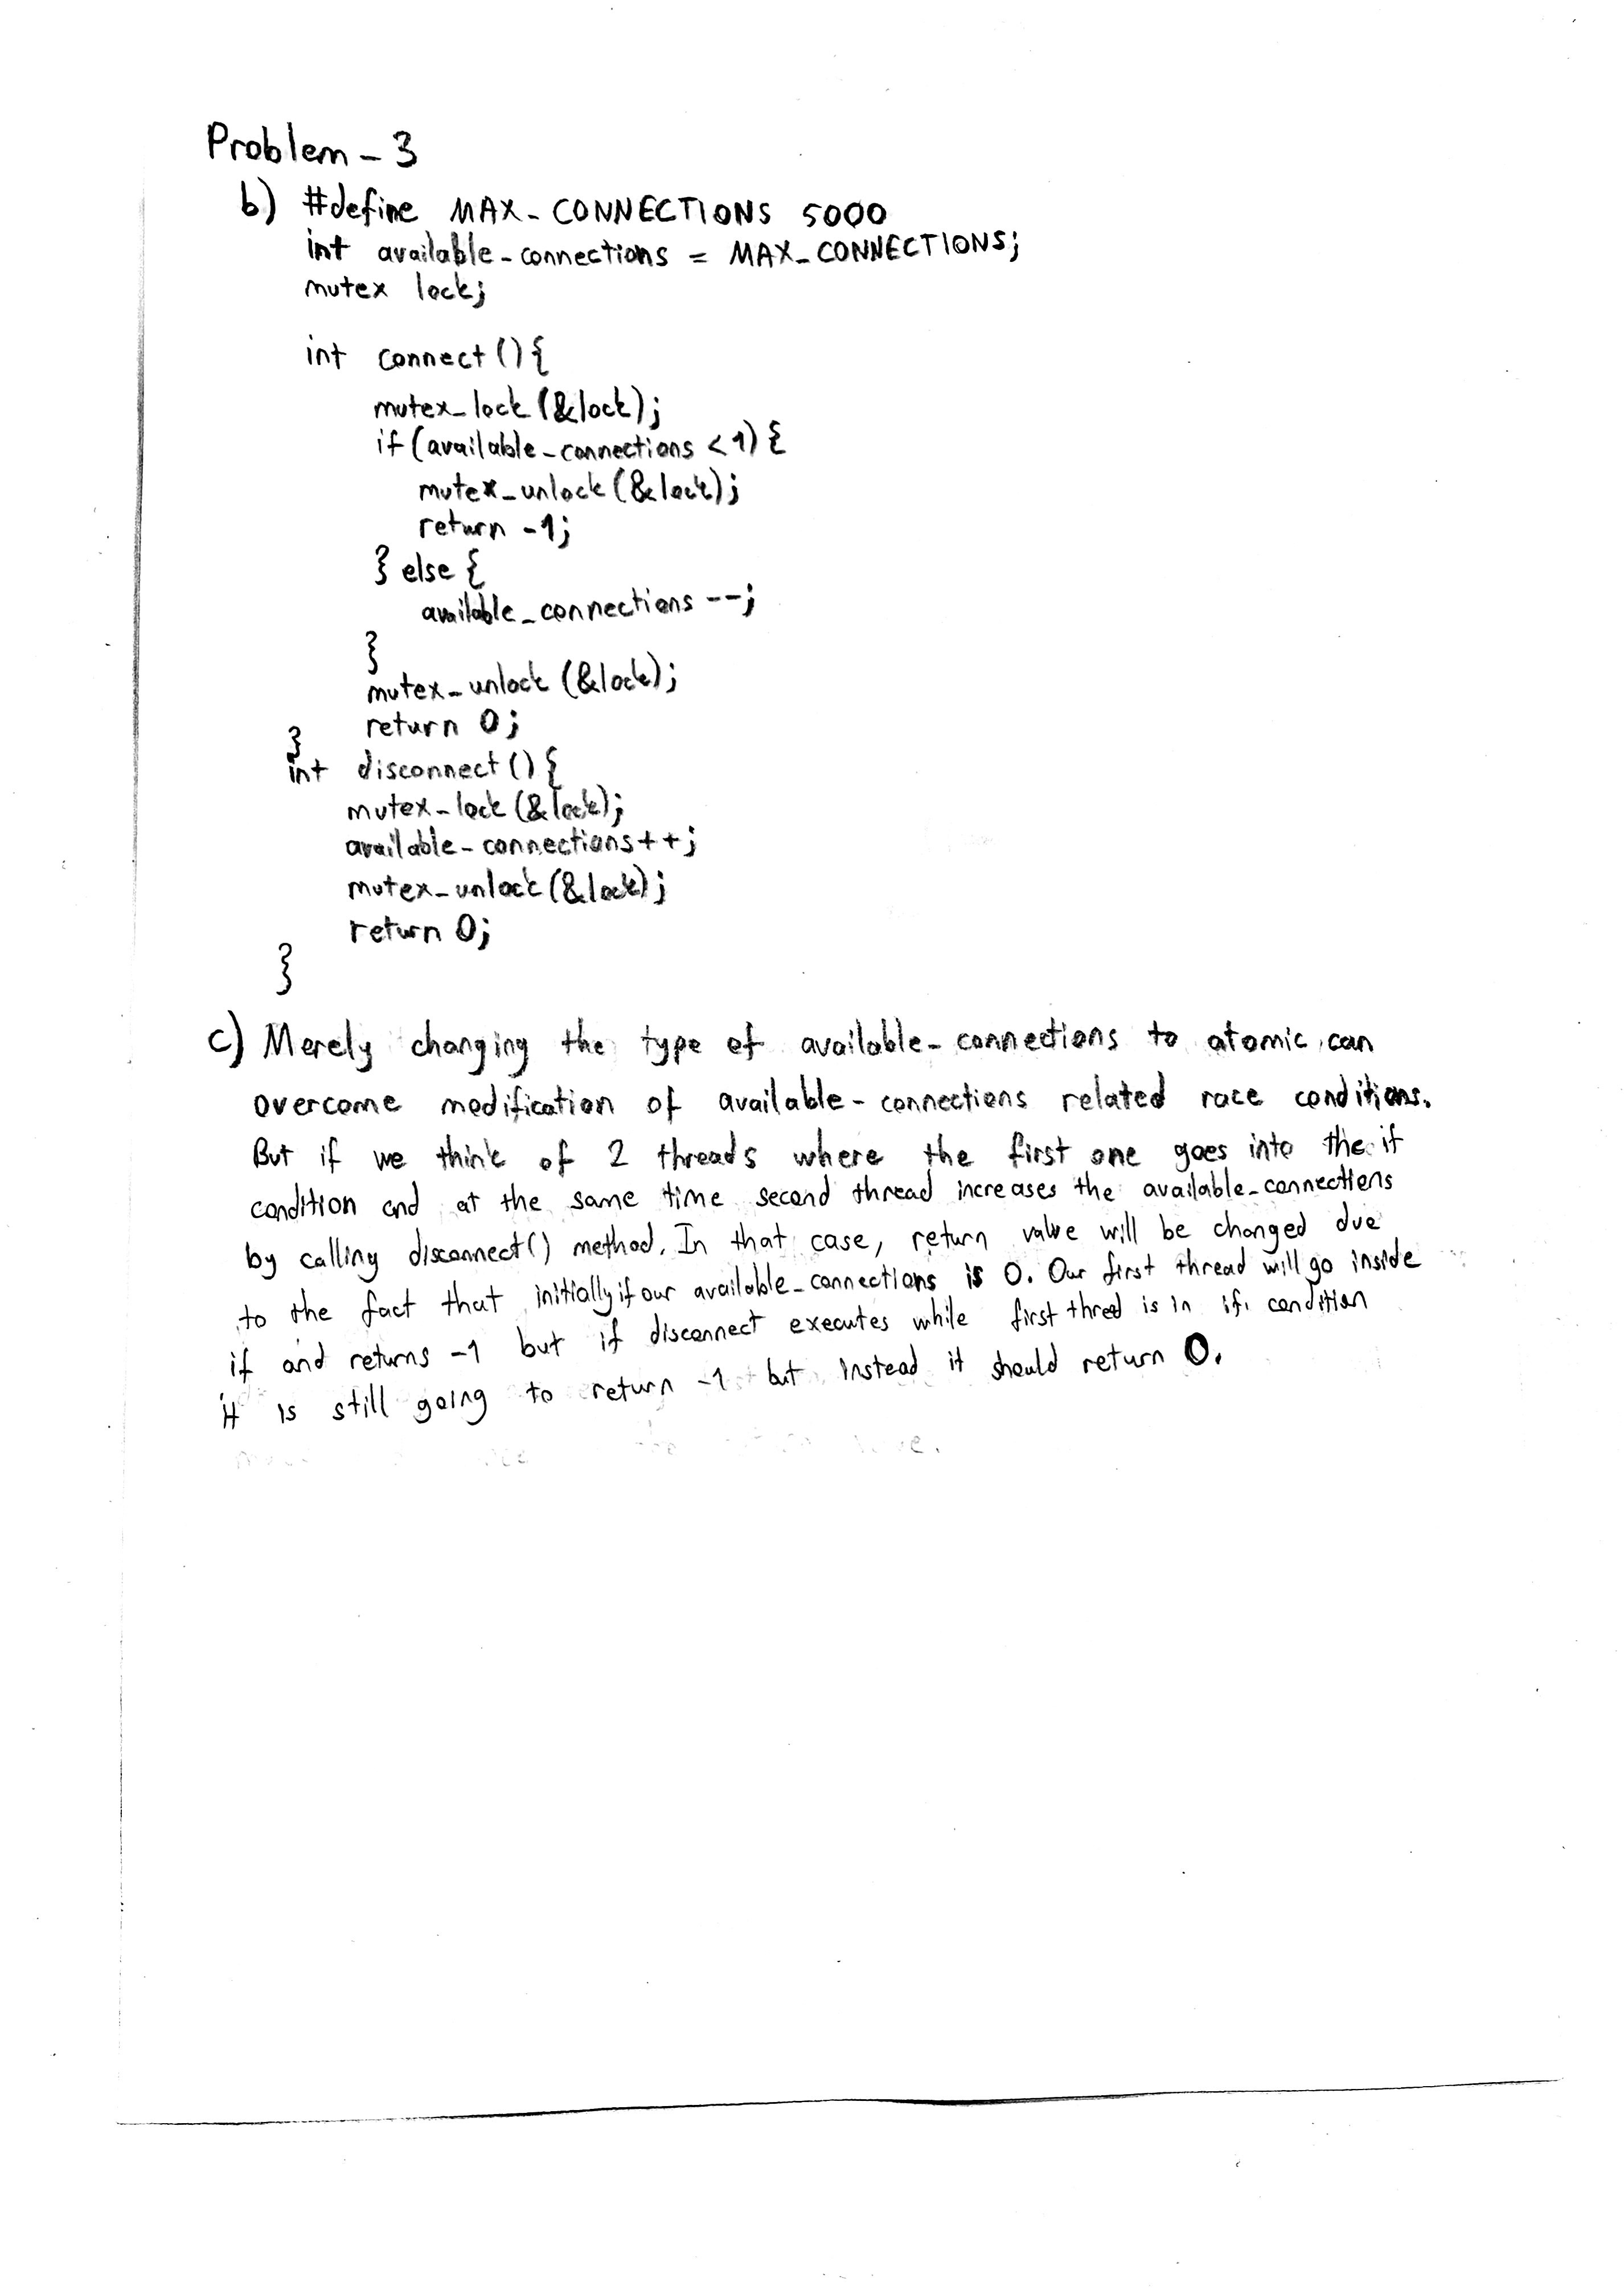 Problem - 3
b) #define MAX-CONNECTIONS 5000
int available-connections = MAX_CONNECTIONS;
mutex lock;
int connect(){
mutex_lock(&lock);
if(available-connections < 1){
mutex_unlock(&lock);
return -1;
} else {
available_connections --;
}
mutex_unlock(&lock);
return 0;
}
int disconnect(){
mutex-lock(&lock);
available-connections++;
mutex-unlock(&lock);
return 0;
}
c) Merely changing the type of available-connections to atomic can
overcome modification of available-connections related race conditions.
But if we think of 2 threads where the first one goes into the if
condition and at the same time second thread increases the available-connections
by calling disconnect() method. In that case, return value will be changed due
to the fact that initially if our available-connections is 0. Our first thread will go inside
if and returns -1 but if disconnect executes while first thred is in if condition
it is still going to return -1 but instead it should return 0.